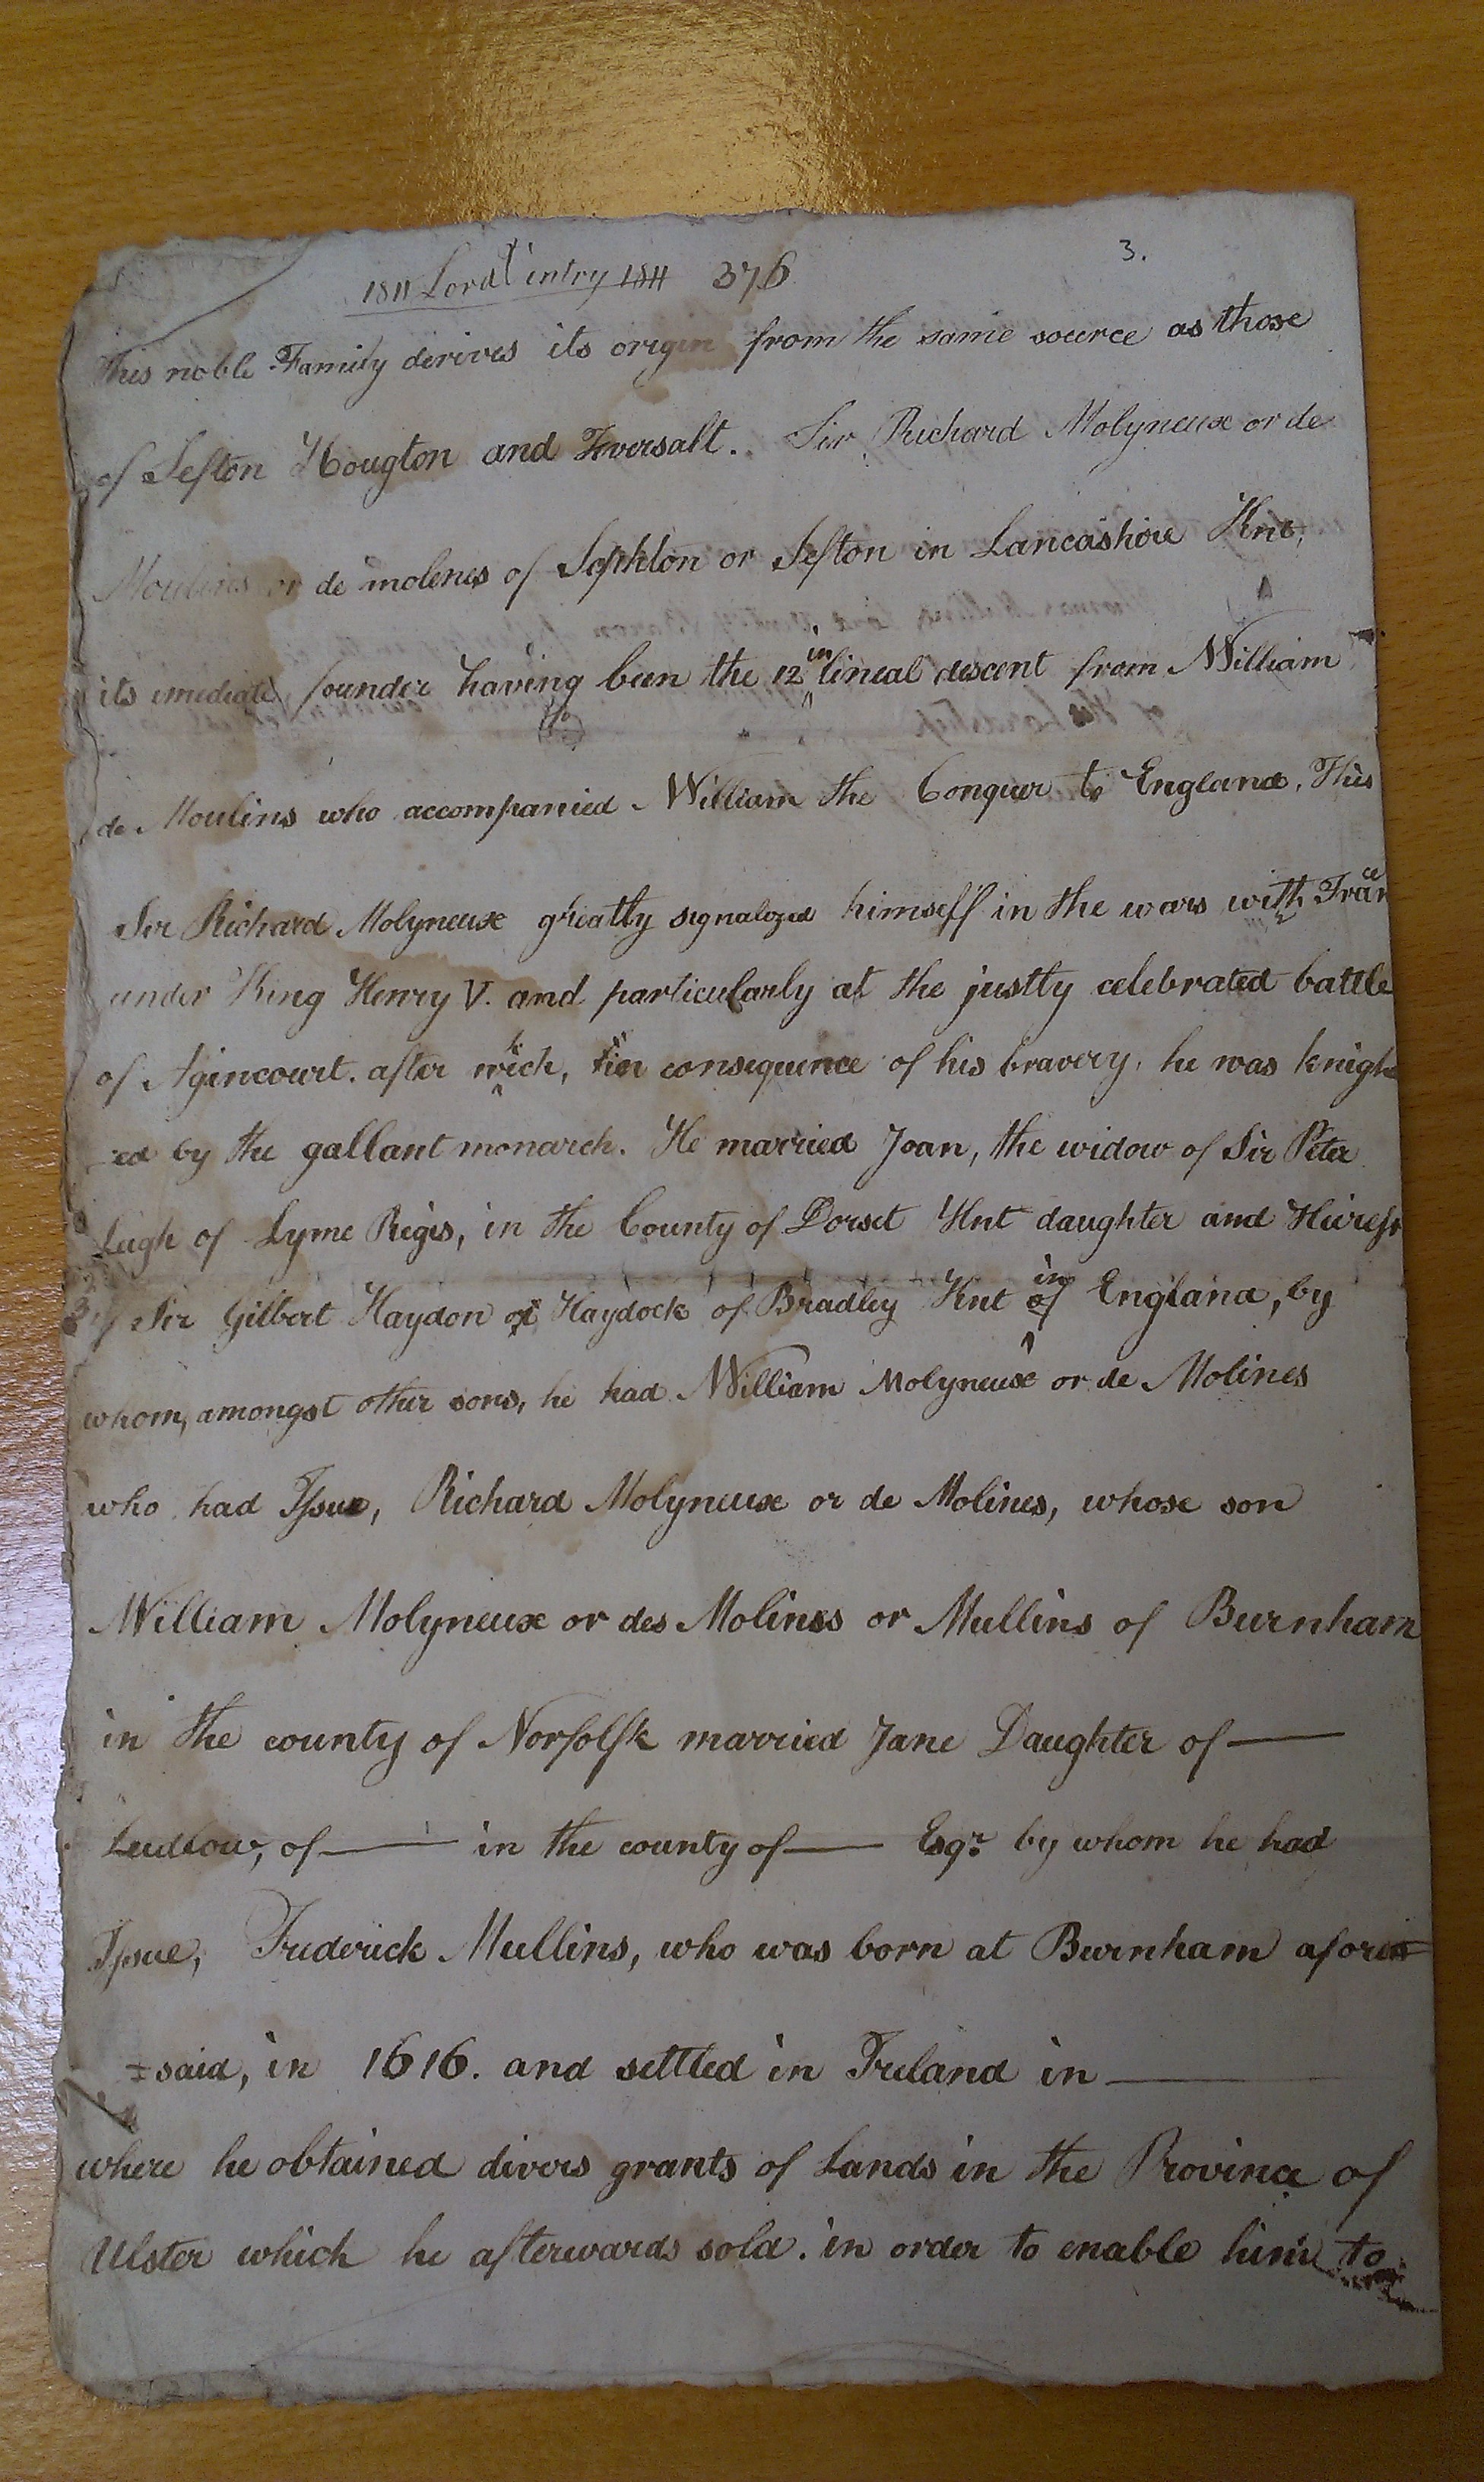 3.
1811 Lord Ventry 1811 376
This noble Family derives its origin from the same source as those
of Sefton Hougton and Teversalt. Sir Richard Molyneux or de
Moulins or de molenes of Sephton or Sefton in Lancashire Knt,
its imediate founder having been the 12 in lineal descent from William
de Moulins who accompanied William the Conquer to England. This
Sir Richard Molyneux greatly signalized himself in the wars with France
under King Henry V. and particularly at the justly celebrated battle
of Agincourt. after which, in consequence of his bravery, he was knight
-ed by the gallant monarch. He married Joan, the widow of Sir Peter
Leigh of Lyme Regis, in the County of Dorset Knt daughter and Heiress
of Sir Gilbert Haydon or Haydock of Bradley Knt in England, by
whom, amongst other sons, he had William Molyneux or de Molines
who had Issue, Richard Molyneux or de Molines, whose son
William Molyneux or des Molines or Mullins of Burnham
in the county of Norfolk married Jane Daughter of —
Ludlow, of — in the county of — Esqr. by whom he had
Issue, Frederick Mullins, who was born at Burnham afore
=said, in 1616. and settled in Ireland in —
where he obtained divers grants of Lands in the Province of
Ulster which he afterwards sold. in order to enable him to